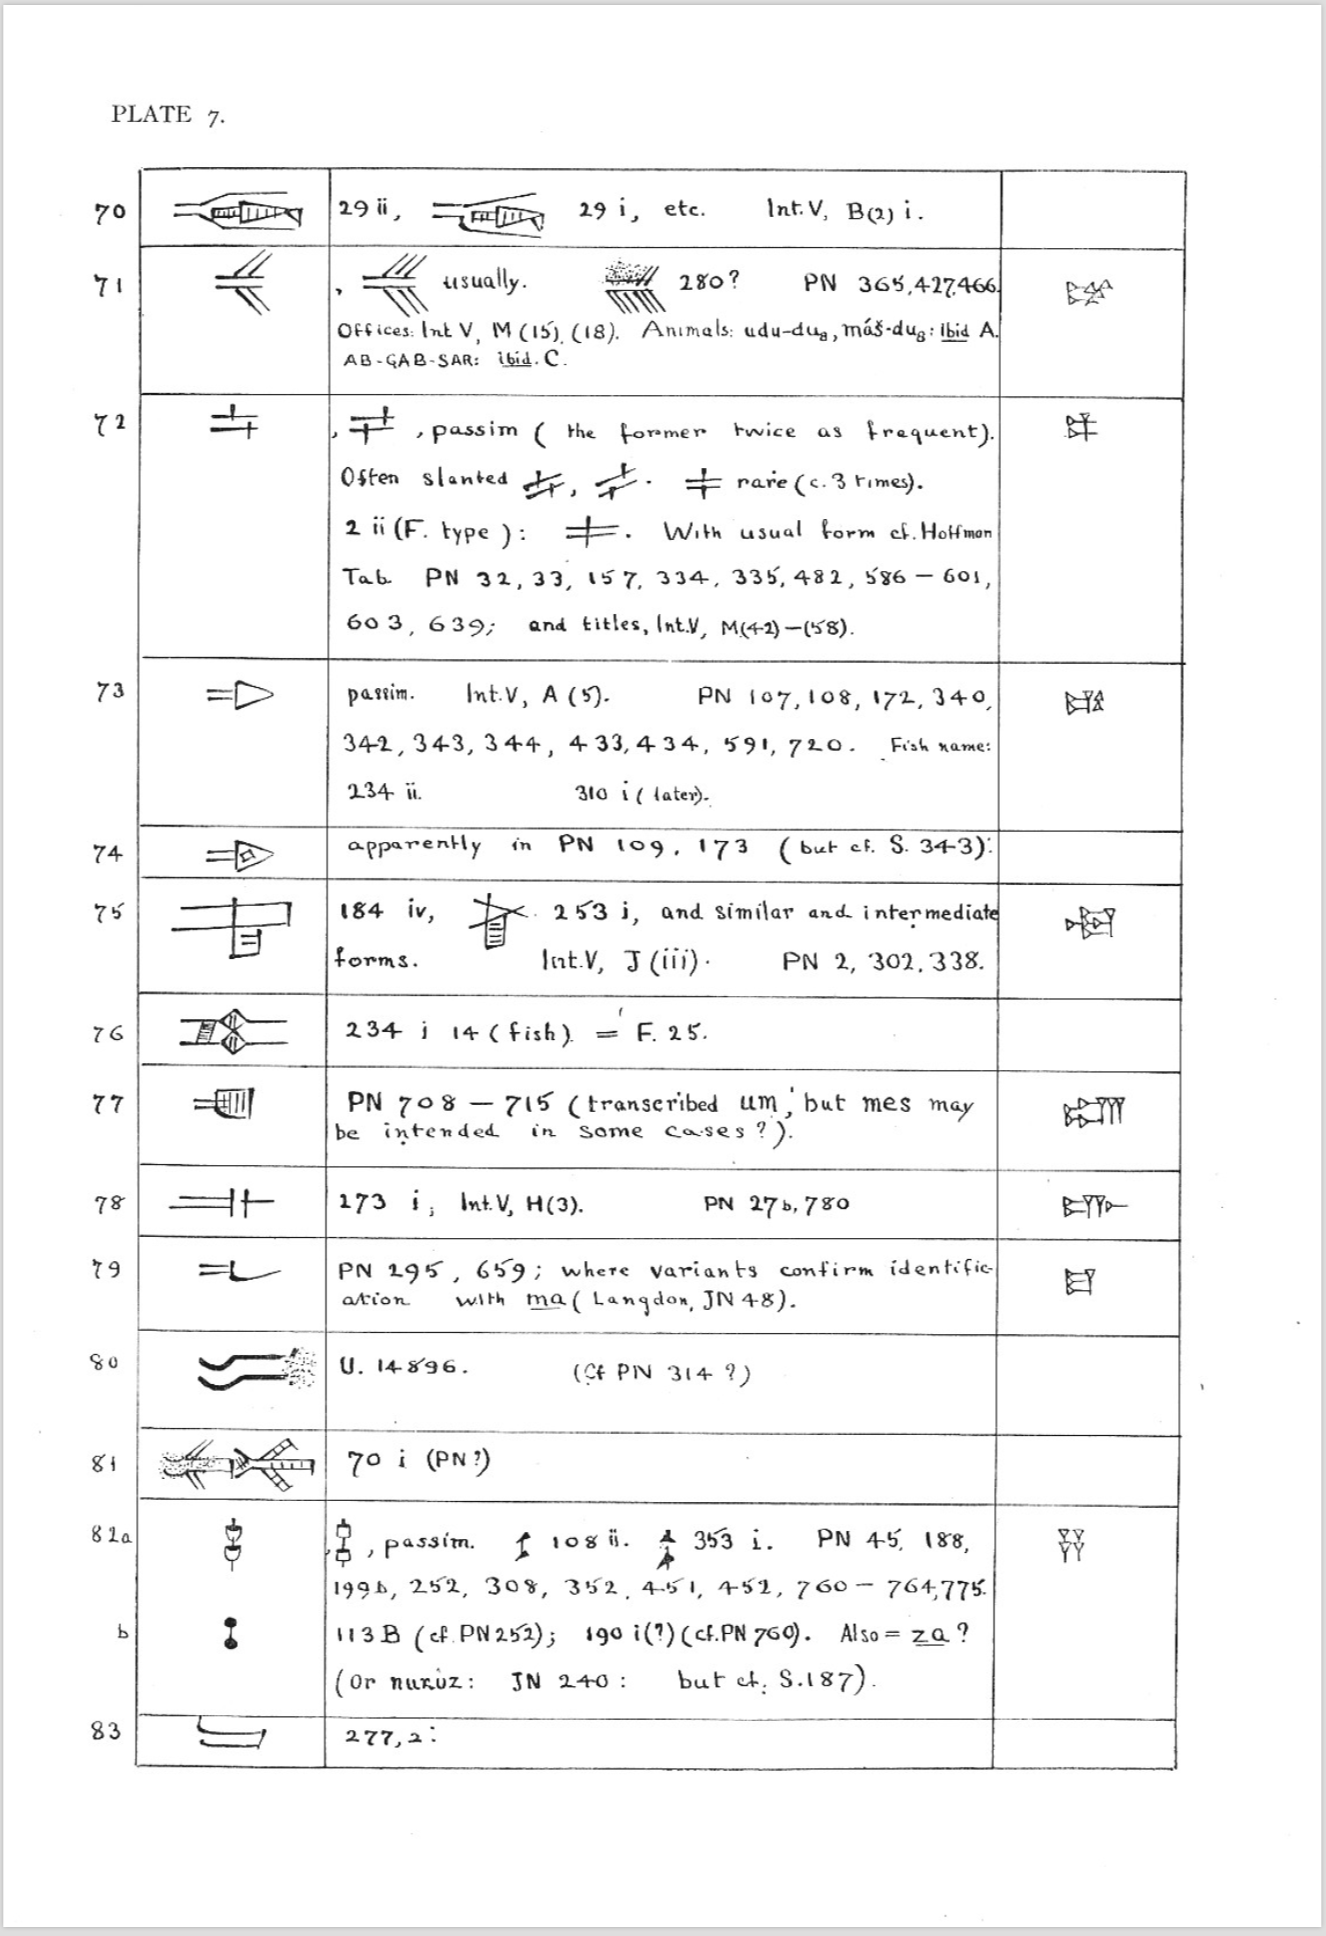 PLATE 7.
70 29 ii, 29 i, etc. Int. V, B(2) i.
71 , usually. 280? PN 365,427,466.
Offices: Int V, M (15), (18). Animals: udu-du₈, máš-du₈: ibid A.
AB-GAB-SAR: ibid. C.
72 , , passim ( the former twice as frequent).
Often slanted , . rare (c. 3 times).
2 ii (F. type ): . With usual form cf. Hoffman
Tab. PN 32, 33, 157, 334, 335, 482, 586 – 601,
603, 639; and titles, Int.V, M(42)–(58).
73 passim. Int.V, A (5). PN 107, 108, 172, 340,
342, 343, 344, 433, 434, 591, 720. Fish name:
234 ii. 310 i ( later).
74 apparently in PN 109, 173 ( but cf. S. 343).
75 184 iv, 253 i, and similar and intermediate
forms. Int.V, J (iii). PN 2, 302, 338.
76 234 i 14 ( fish) = F. 25.
77 PN 708 – 715 ( transcribed um, but mes may
be intended in some cases ? ).
78 273 i, Int.V, H(3). PN 27b, 780
79 PN 295, 659; where variants confirm identific-
ation with ma ( Langdon, JN 48).
80 U. 14896. (Cf PN 314 ?)
81 70 i (PN?)
82a , , passim. 108 ii. 353 i. PN 45, 188,
199b, 252, 308, 352, 451, 452, 760 – 764, 775.
b 113 B ( cf. PN 252); 190 i(?) (cf. PN 760). Also = za ?
( Or nunuz: JN 240: but cf. S.187).
83 277, 2.